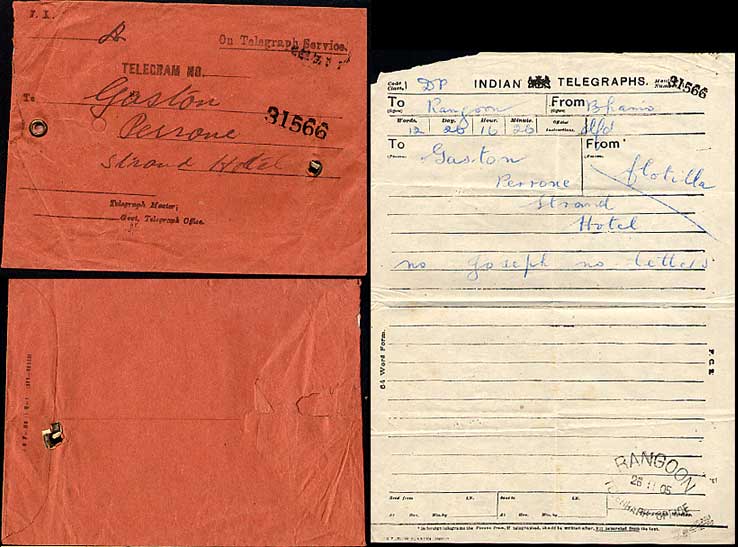 On Telegraph Service.
TELEGRAM No.
To
Gaston
Perrone
Strand Hotel
31566
Telegraph Master;
Govt. Telegraph Office.
INDIAN TELEGRAPHS.
31566
Code Class. DP
To Rangoon From Bhamo
Words. Day. Hour. Minute.
12 26 16 26
To Gaston From flotilla
Perrone
Strand
Hotel
no Joseph no letters
64 Word Form.
RANGOON
26 11 05